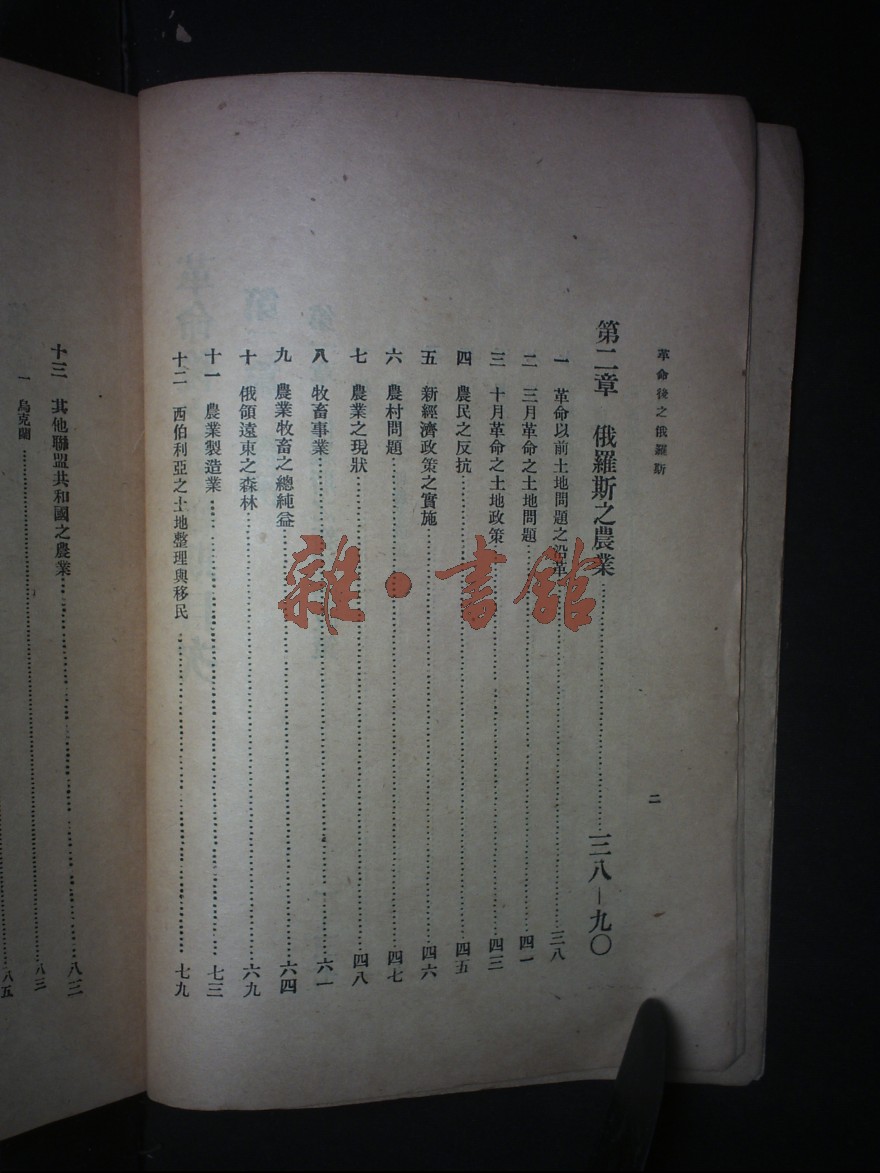 革命後之俄羅斯
二
第二章 俄羅斯之農業……三八—九〇
一 革命以前土地問題之沿革……三八
二 三月革命之土地問題……四一
三 十月革命之土地政策……四三
四 農民之反抗……四五
五 新經濟政策之實施……四六
六 農村問題……四七
七 農業之現狀……四八
八 牧畜事業……六一
九 農業牧畜之總純益……六四
十 俄領遠東之森林……六九
十一 農業製造業……七三
十二 西伯利亞之土地整理與移民……七九
十三 其他聯盟共和國之農業……八三
一 烏克蘭……八三
……八五
雜·書館